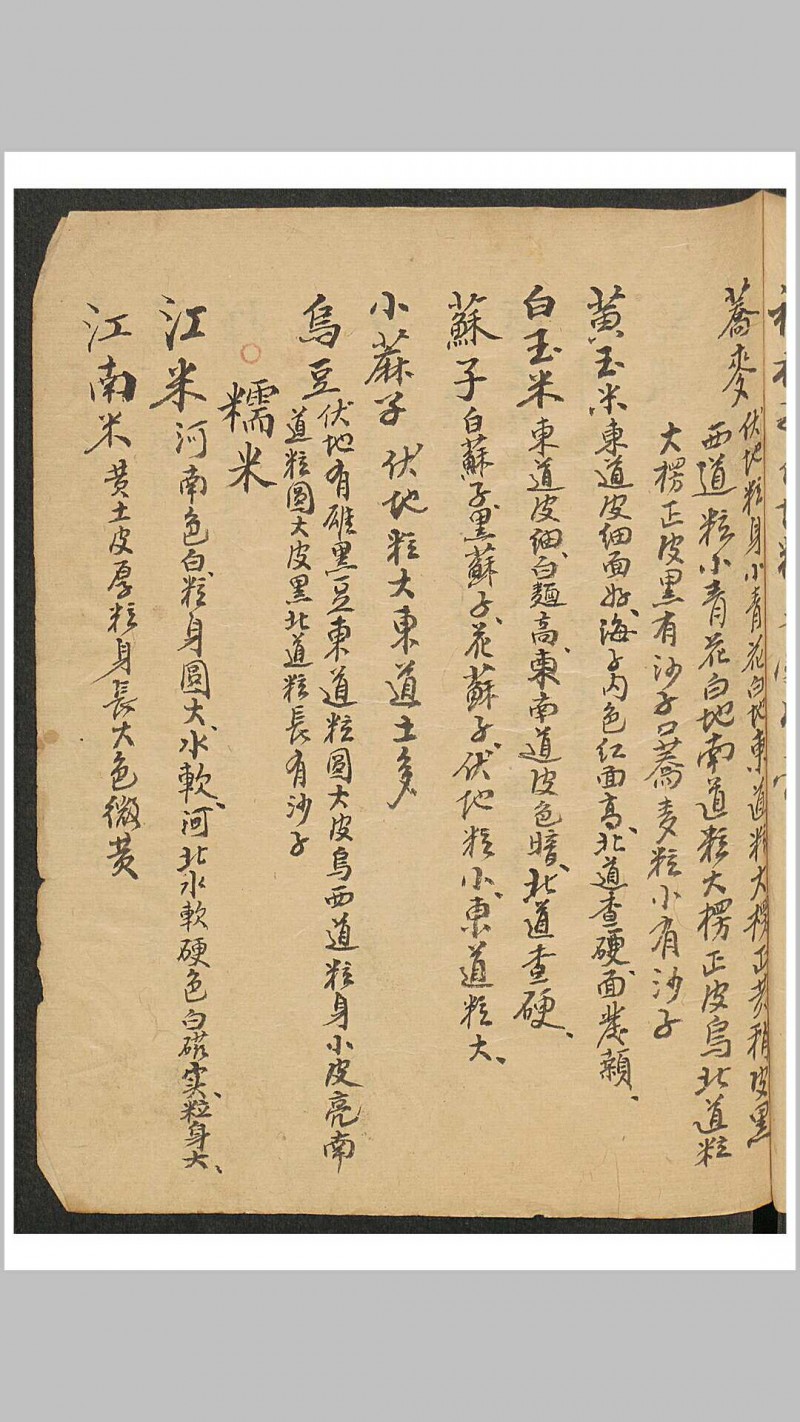 蕎麥伏地粒身小青花白地東道粒大楞正黃稍皮黑
西道粒小青花白地南道粒大楞正皮烏北道粒
大楞正皮黑有沙子口蕎麥粒小有沙子
黃玉米東道皮細面好海子內色紅面高北道查硬面發
白玉米東道皮細白麵高東南道皮色暗北道查硬
蘇子白蘇子黑蘇子花蘇子伏地粒小東道粒大
小蔴子伏地粒大東道土多
烏豆伏地有雄黑豆東道粒圓大皮烏西道粒身小皮亮南
道粒圓大皮黑北道粒長有沙子
糯米
江米河南色白粒身圓大水軟河北水軟硬色白磁实粒身大
江南米黃土皮厚粒身長大色微黃